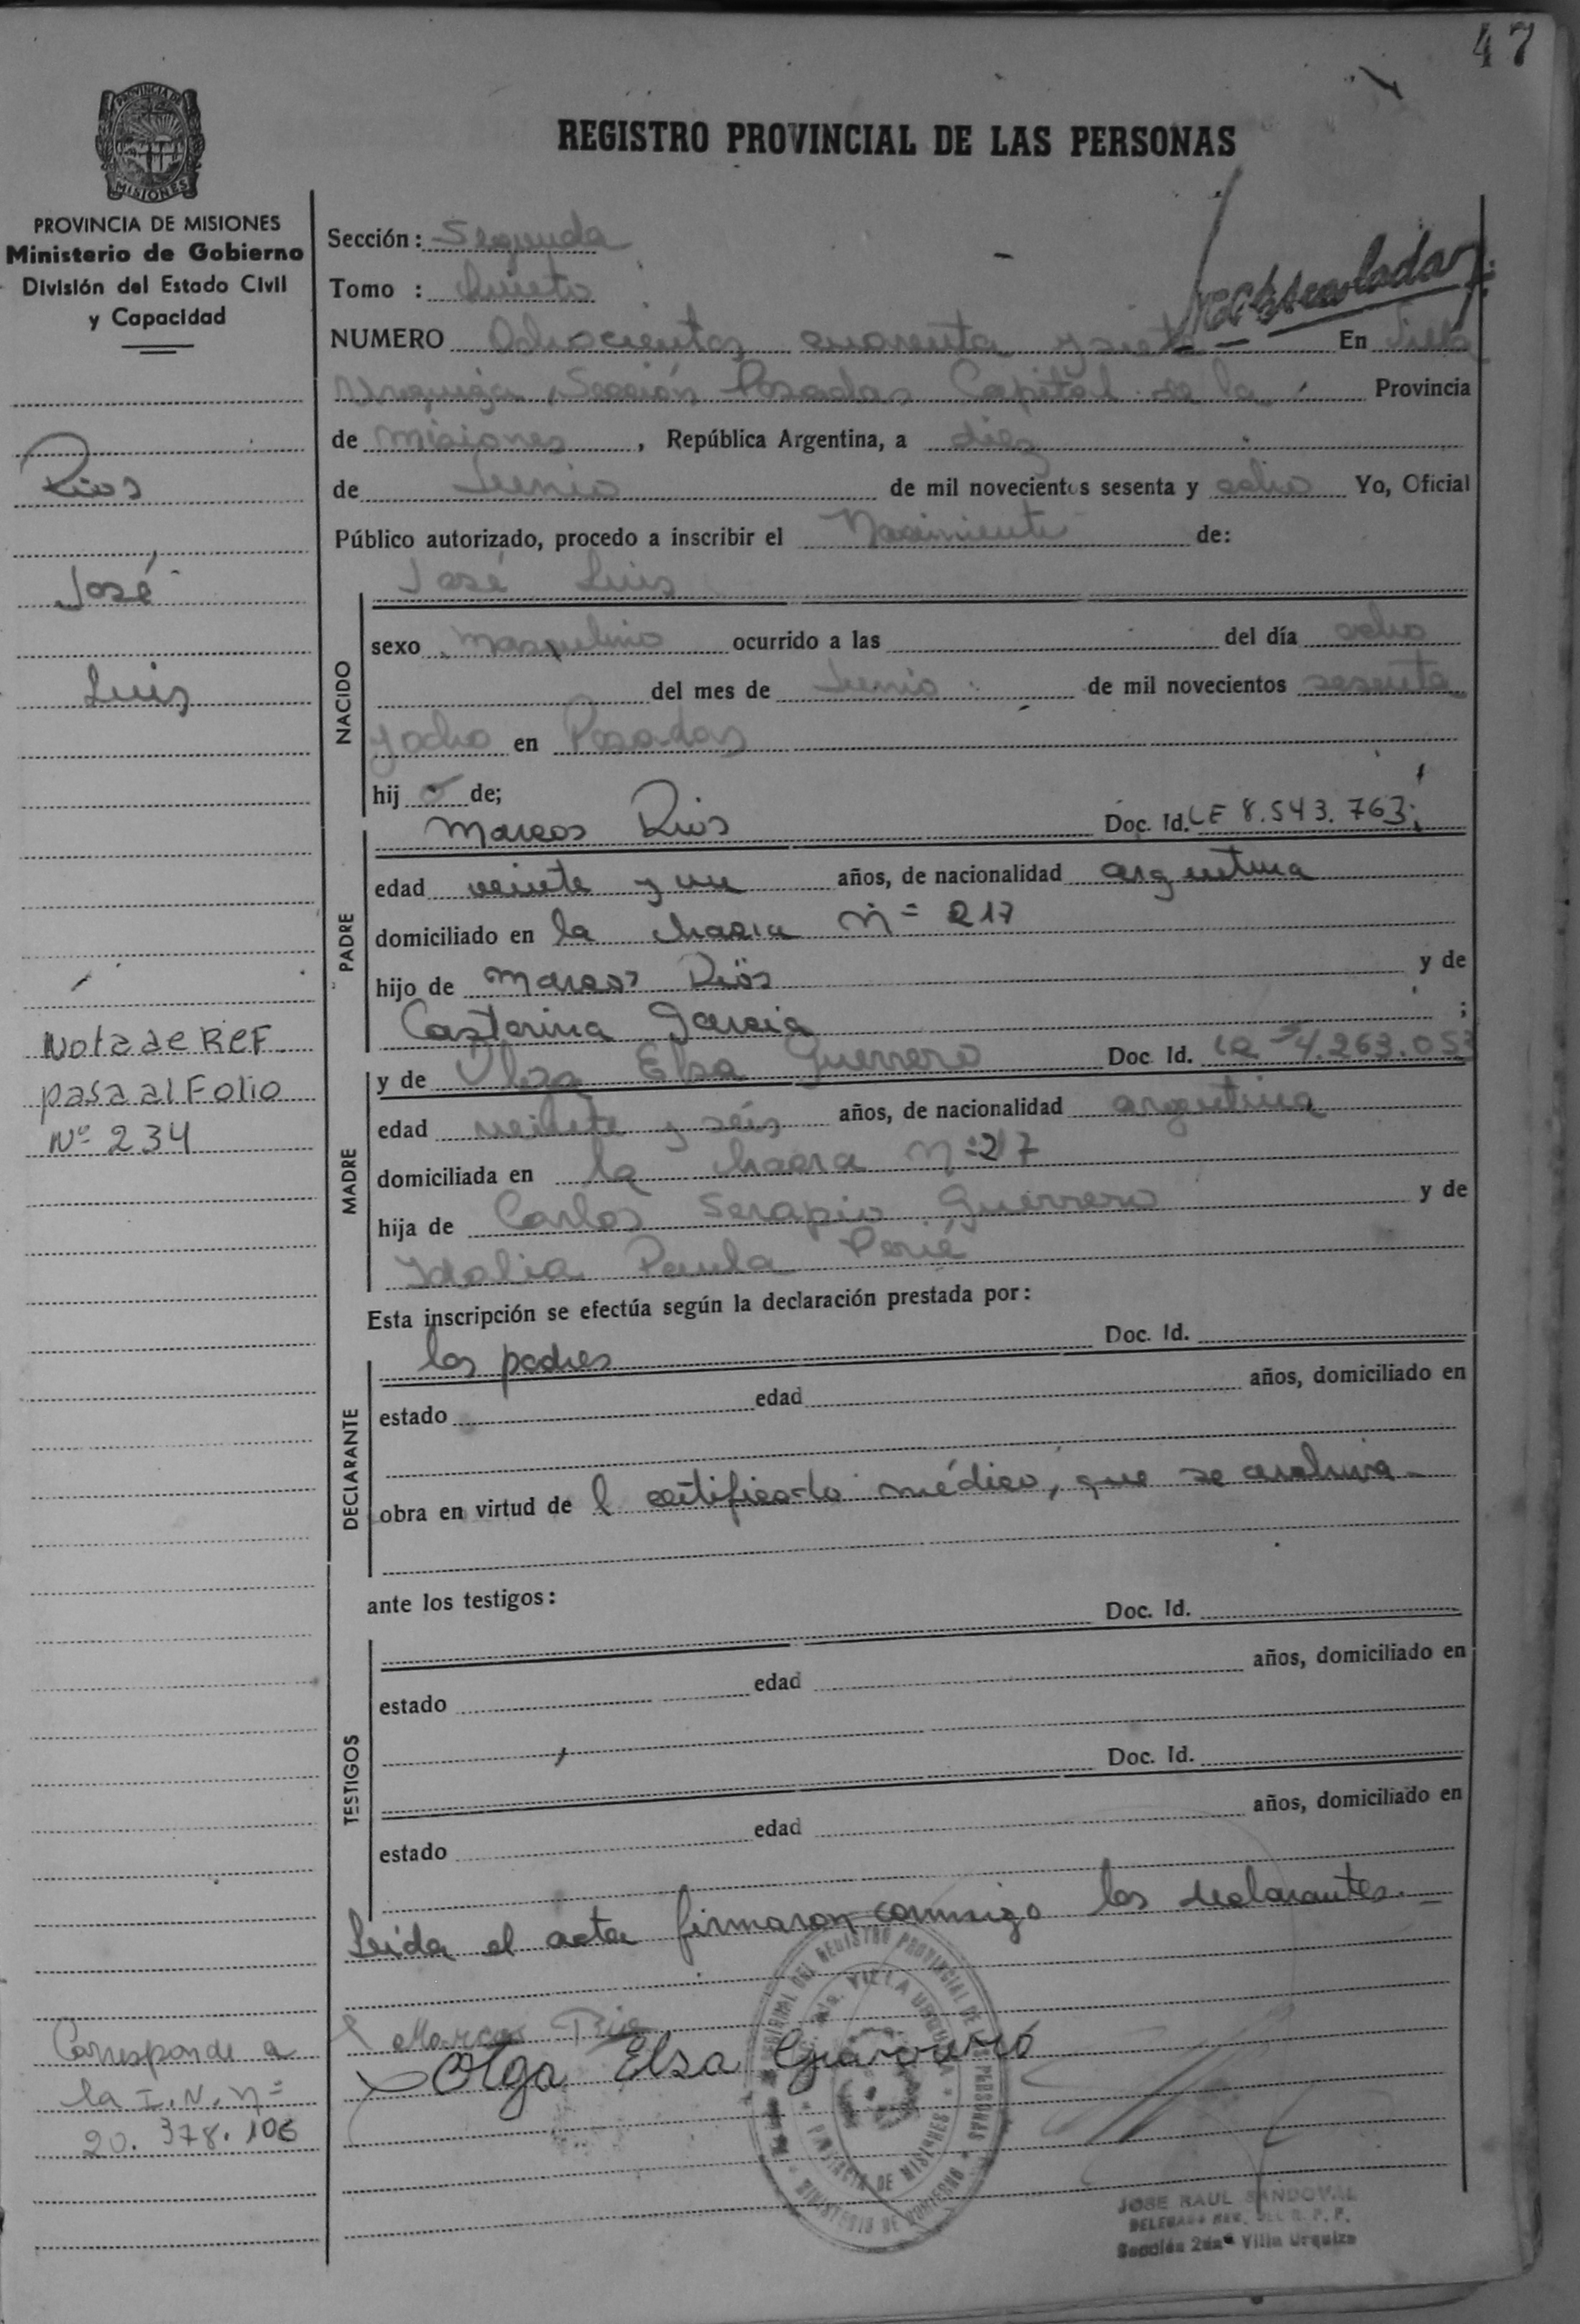 47
PROVINCIA DE
MISIONES
REGISTRO PROVINCIAL DE LAS PERSONAS
PROVINCIA DE MISIONES
Ministerio de Gobierno
División del Estado Civil
y Capacidad
Rios
José
Luis
Nota de REF
pasa al Folio
Nº 234
Corresponde a
la I. N. nº
20. 378. 106
Sección: Segunda
Tomo : Quinto
NUMERO Ochocientos cuarenta y siete En Villa
Urquiza, Sección Posadas Capital de la Provincia
de Misiones, República Argentina, a diez
de Junio de mil novecientos sesenta y ocho Yo, Oficial
Público autorizado, procedo a inscribir el Nacimiento de:
José Luis
NACIDO
sexo Masculino ocurrido a las del día ocho
del mes de Junio de mil novecientos sesenta
y ocho en Posadas
hij o de;
PADRE
Marcos Rios Doc. Id. LE 8.543.763;
edad veinte y un años, de nacionalidad argentina
domiciliado en la chacra Nº 217
hijo de Marcos Rios y de
Casterina Garcia ;
MADRE
y de Olga Elsa Guerrero Doc. Id.
edad veinte y seis años, de nacionalidad argentina
domiciliada en la chacra Nº 217
hija de Carlos Serapio Guerrero y de
Idalia Paula
Esta inscripción se efectúa según la declaración prestada por:
DECLARANTE
los padres Doc. Id.
estado edad años, domiciliado en
obra en virtud de l certificado médico, que se archiva-
ante los testigos:
TESTIGOS
Doc. Id.
estado edad años, domiciliado en
Doc. Id.
estado edad años, domiciliado en
Leida el acta firmaron conmigo los declarantes.=
Marcos Rios
Olga Elsa Guerrero
JOSE RAUL SANDOVAL
Sección 2da Villa Urquiza